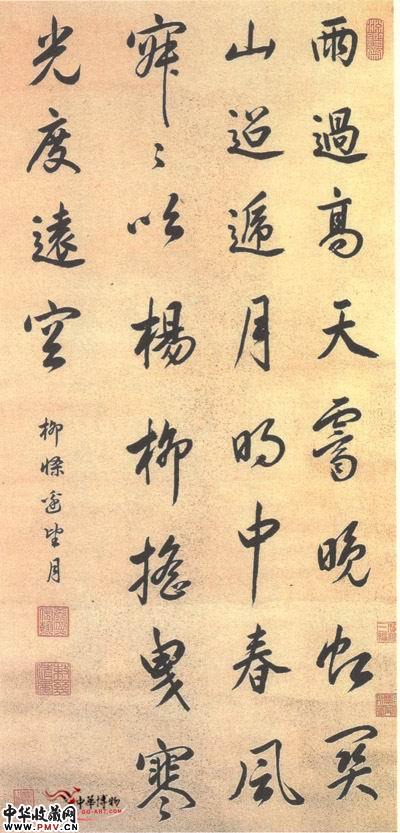 雨過高天霽晚虹關
山迢遞月明中春風
寂〻吹楊柳搖曳寒
光度遠空
柳條邊望月
中華博物
GG-ART.COM
中华收藏网
WWW.PMV.CN